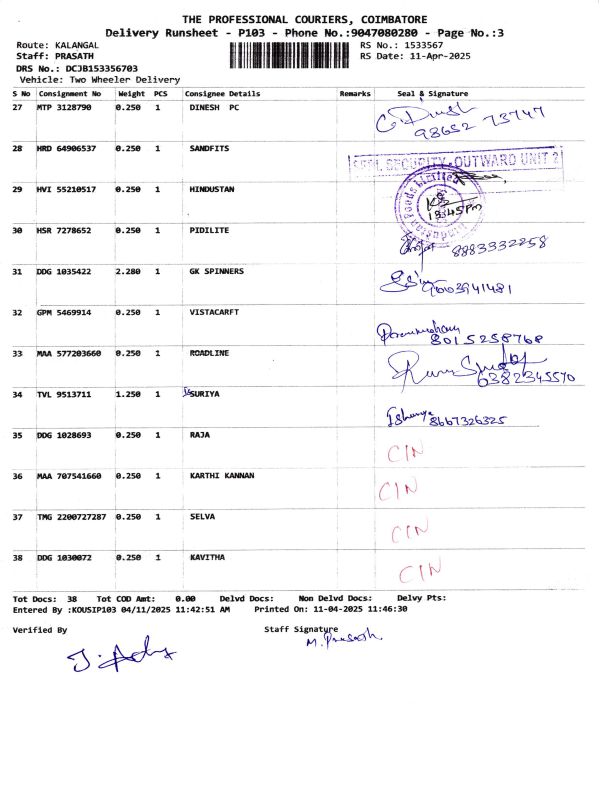 THE PROFESSIONAL COURIERS, COIMBATORE
Delivery Runsheet - P103 - Phone No.:9047080280 - Page No.:3
Route: KALANGAL RS No.: 1533567
Staff: PRASATH RS Date: 11-Apr-2025
DRS No.: DCJB153356703
Vehicle: Two Wheeler Delivery
S No Consignment No Weight PCS Consignee Details Remarks Seal & Signature
27 MTP 3128790 0.250 1 DINESH PC
98652 73747
28 HRD 64906537 0.250 1 SANDFITS
SECURITY - OUTWARD UNIT 2
29 HVI 55210517 0.250 1 HINDUSTAN
12:45 PM
30 HSR 7278652 0.250 1 PIDILITE
8883332258
31 DDG 1035422 2.280 1 GK SPINNERS
9003941481
32 GPM 5469914 0.250 1 VISTACARFT
8015258768
33 MAA 577203660 0.250 1 ROADLINE
6382345570
34 TVL 9513711 1.250 1 SURIYA
8667326325
35 DDG 1028693 0.250 1 RAJA CIN
36 MAA 707541660 0.250 1 KARTHI KANNAN CIN
37 TMG 2200727287 0.250 1 SELVA CIN
38 DDG 1030072 0.250 1 KAVITHA CIN
Tot Docs: 38 Tot COD Amt: 0.00 Delvd Docs: Non Delvd Docs: Delvy Pts:
Entered By :KOUSIP103 04/11/2025 11:42:51 AM Printed On: 11-04-2025 11:46:30
Verified By Staff Signature
M. Prasath